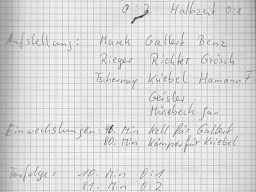 0:2 Halbzeit 0:1
Aufstellung: Marek Gallert Benz
Rieger Richter Grosch
Tschernay Kniebel Hamann F.
Geisler
Müsebeck Jan.
Einwechslungen: 46. Min Kell für Gallert
80. Min Kämper für Kniebel
Torfolge: 10. Min 0:1
81. Min 0:2